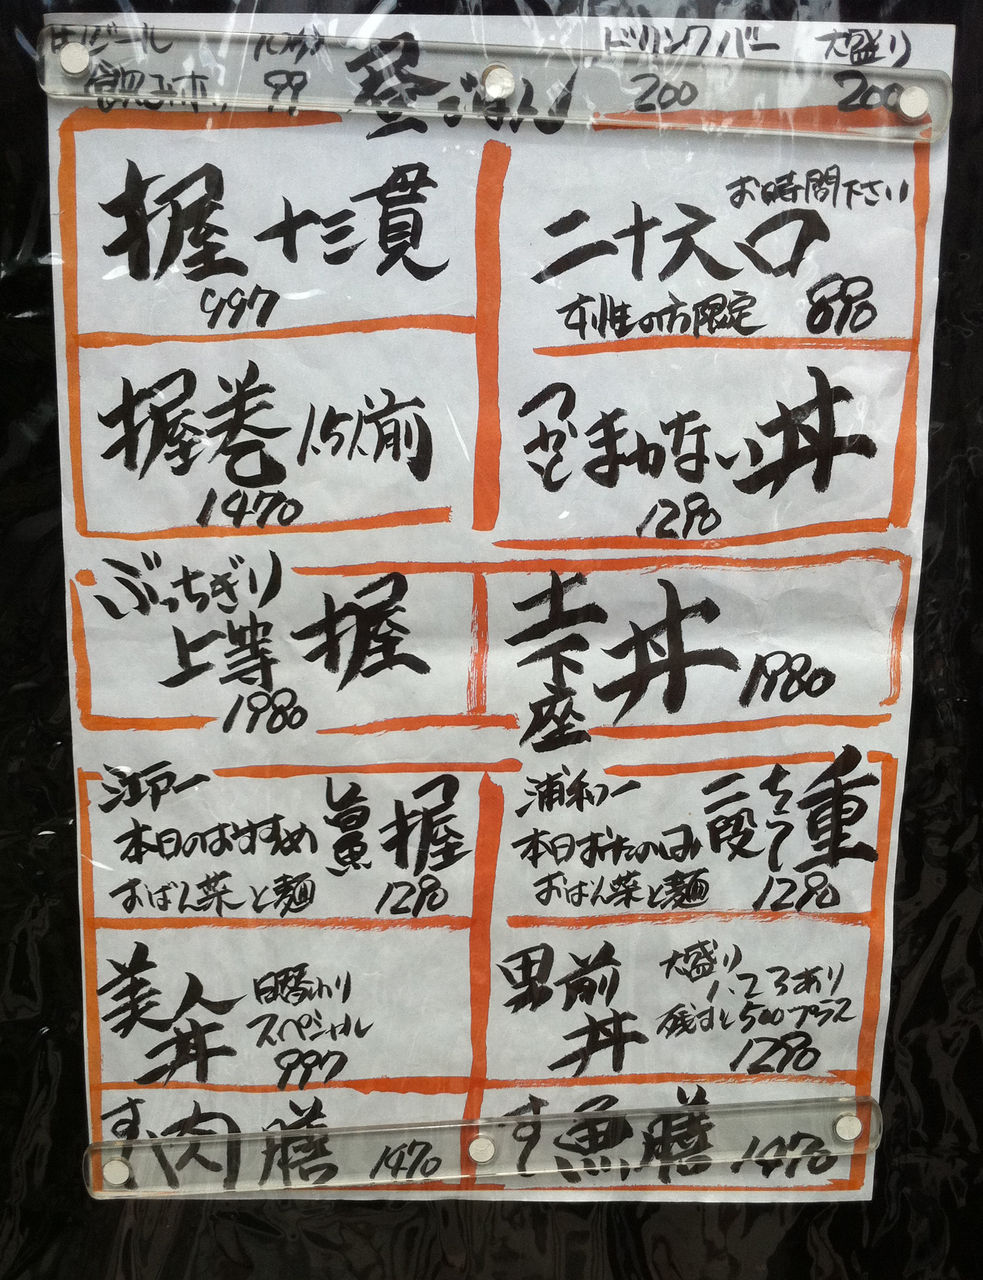 生ビール
99
昼ごはん
ドリンクバー
200
大盛り
200
握十三貫
997
お時間下さい
二十六口
女性の方限定
890
握巻1.5人前
1470
まかない丼
1290
ぶっちぎり
上等握
1980
土下座丼
1980
江戸一
本日のおすすめ
旨魚握
おばん菜と麺
1290
浦和一
本日おたのしみ
二段ちらし重
おばん菜と麺
1290
美人丼
日替わり
スペシャル
997
男前丼
大盛り
1、2、3あり
残すと500プラス
1290
肉膳
1470
魚膳
1470